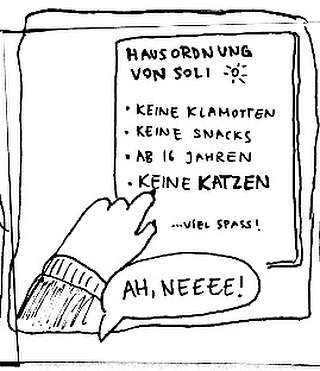 HAUSORDNUNG
VON SOLI
• KEINE KLAMOTTEN
• KEINE SNACKS
• AB 16 JAHREN
• KEINE KATZEN
...VIEL SPASS!
AH, NEEEE!